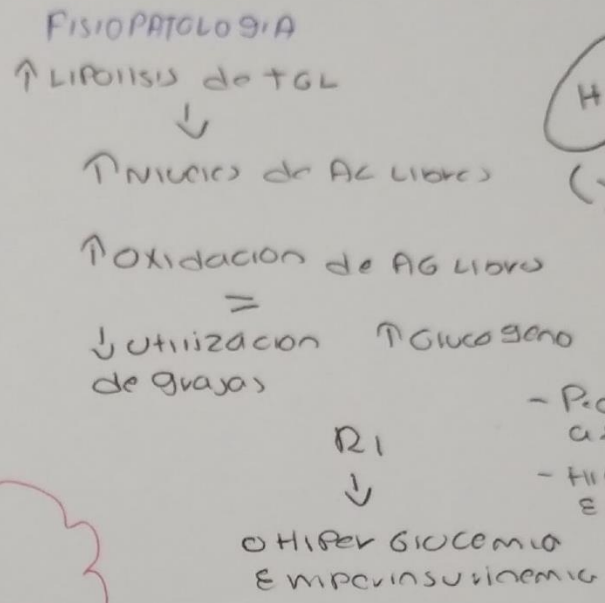 FISIOPATOLOGIA
↑ LIPOLISIS de TGL
↓
↑ Niveles de AG Libres
↑ OXIDACION de AG Libre
=
↓ Utilizacion ↑ Glucogeno
de grasas
RI
↓
O HIPER GLUCEMIA
E HIPERINSULINEMIA
H